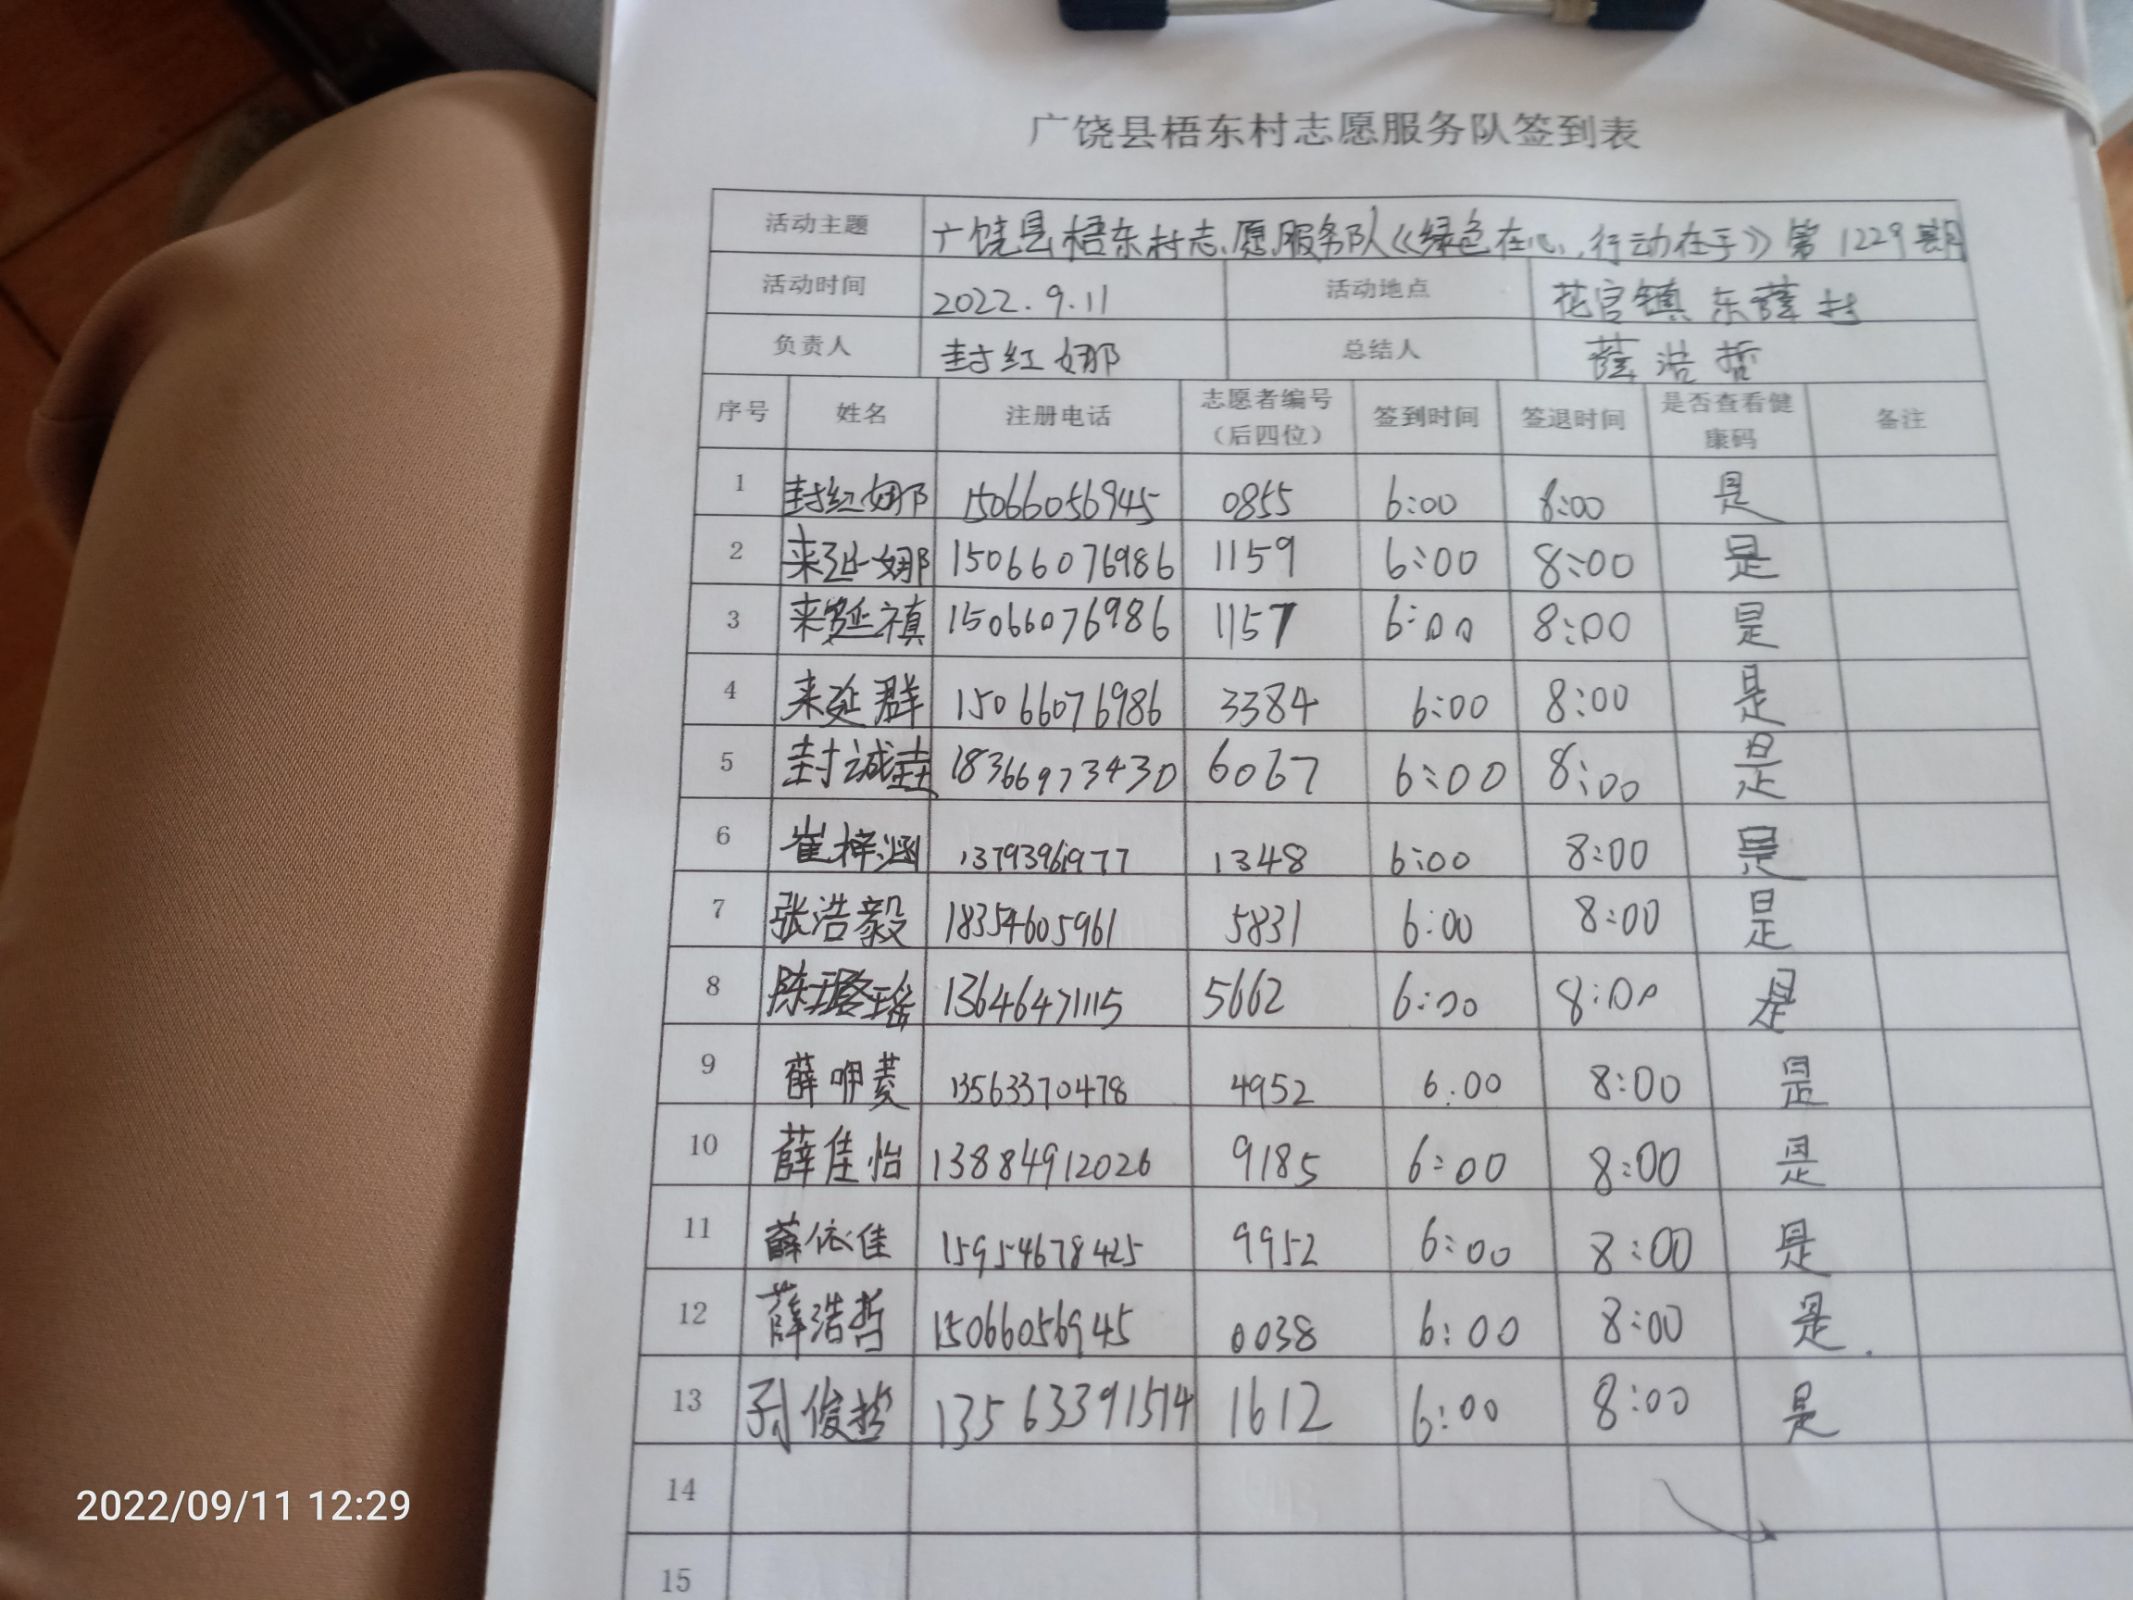 广饶县梧东村志愿服务队签到表
活动主题 广饶县梧东村志愿服务队《绿色在心,行动在手》第1229期
活动时间 2022.9.11 活动地点 花官镇东薛村
负责人 封红娜 总结人 薛浩哲
序号 姓名 注册电话 志愿者编号（后四位） 签到时间 签退时间 是否查看健康码 备注
1 封红娜 15066056945 0855 6:00 8:00 是
2 来延娜 15066076986 1159 6:00 8:00 是
3 来延禛 15066076986 1157 6:00 8:00 是
4 来延群 15066076986 3384 6:00 8:00 是
5 封诚 18366973430 6067 6:00 8:00 是
6 崔梓涵 13793961977 1348 6:00 8:00 是
7 张浩毅 18354605961 5831 6:00 8:00 是
8 陈珞瑶 13646471115 5662 6:00 8:00 是
9 薛 13563370478 4952 6:00 8:00 是
10 薛佳怡 13884912026 9185 6:00 8:00 是
11 薛依佳 15954678425 9952 6:00 8:00 是
12 薛浩哲 15066056945 0038 6:00 8:00 是.
13 孙俊哲 13563391514 1612 6:00 8:00 是
14
15
2022/09/11 12:29